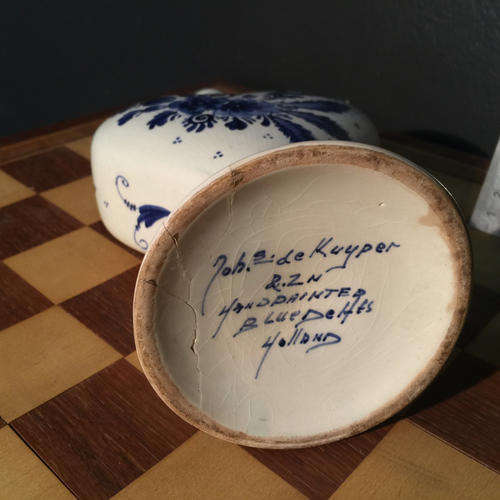 Joh.s de Kuyper
& ZN
HANDPAINTED
BLUE DeLfts
Holland